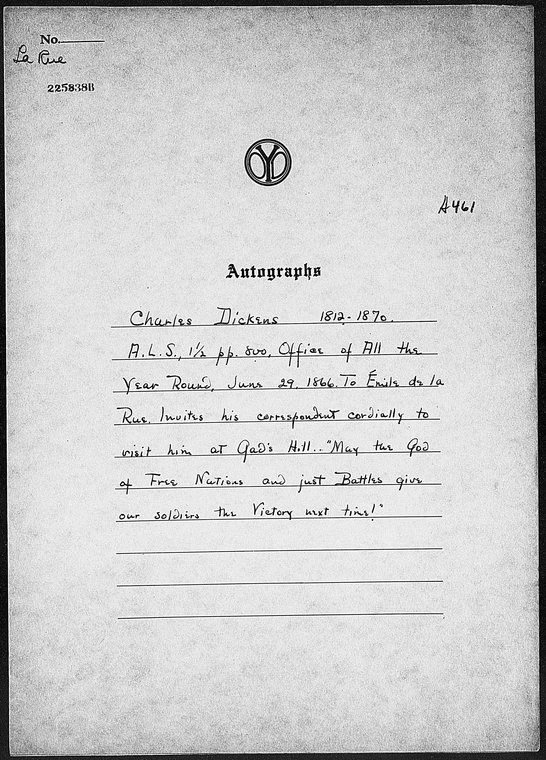 No.
La Rue
225838B
OYO
A461
Autographs
Charles Dickens 1812-1870.
A.L.S., 1½ pp. 8vo, Office of All the
Year Round, June 29, 1866. To Émile de la
Rue. Invites his correspondent cordially to
visit him at Gad's Hill.. "May the God
of Free Nations and just Battles give
our soldiers the Victory next time!"